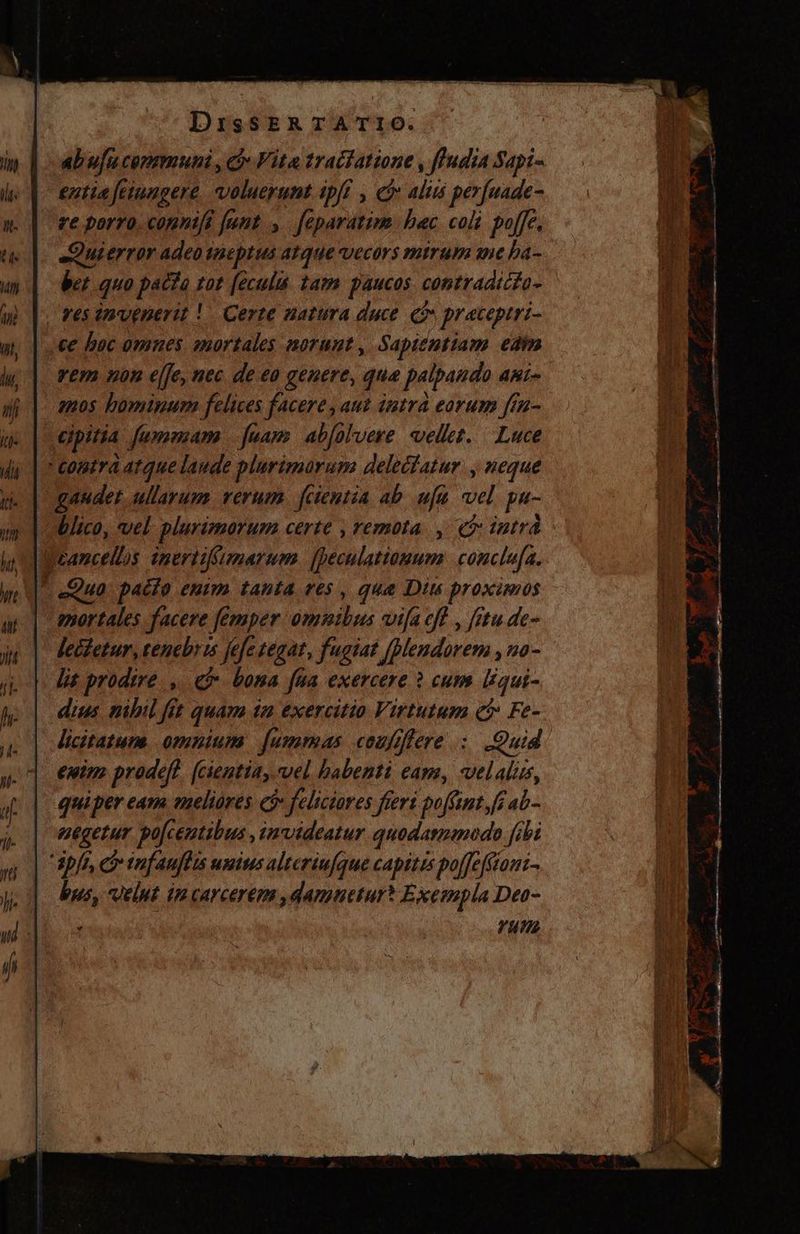 DISSERTATIO.
ab uſu communi, & Vita tractatione, ſtudia Sapi-
entiæ ſeiungere voluerunt ipſi, & aliis perſuade-
re porro conniſi ſunt, ſeparatim hæc coli poſſe.
Qui error adeo ineptus atque vecors mirum me ha-
bet quo pacto tot ſeculis tam paucos contradicto-
res invenerit! Certe natura duce & præceptri-
ce hoc omnes mortales norunt, Sapientiam eam
rem non eſſe, nec de eo genere, quæ palpando ani-
mos hominum felices facere, aut intrà eorum ſin-
cipitia ſummam ſuam abſolvere vellet. Luce
contrà atque laude plurimorum delectatur, neque
gaudet ullarum rerum ſcientia ab uſu vel pu-
blico, vel plurimorum certe, remota, & intrà
cancellos inertiſſimarum ſpeculationum concluſa.
Quo pacto enim tanta res, quæ Diis proximos
mortales facere ſemper omnibus viſa eſt, ſitu de-
lectetur, tenebris ſeſe tegat, fugiat ſplendorem, no-
lit prodire, & bona ſua exercere? cum liqui-
dius nihil ſit quam in exercitio Virtutum & Fe-
licitatum omnium ſummas conſiſtere: Quid
enim prodeſt ſcientia, vel habenti eam, vel aliis,
qui per eam meliores & feliciores fieri poſſint, ſi ab-
negetur poſcentibus, invideatur quodammodo ſibi
ipſi, & infauſtis unius alteriuſque capitis poſſeſſioni-
bus, velut in carcerem, damnetur? Exempla Deo-
rum